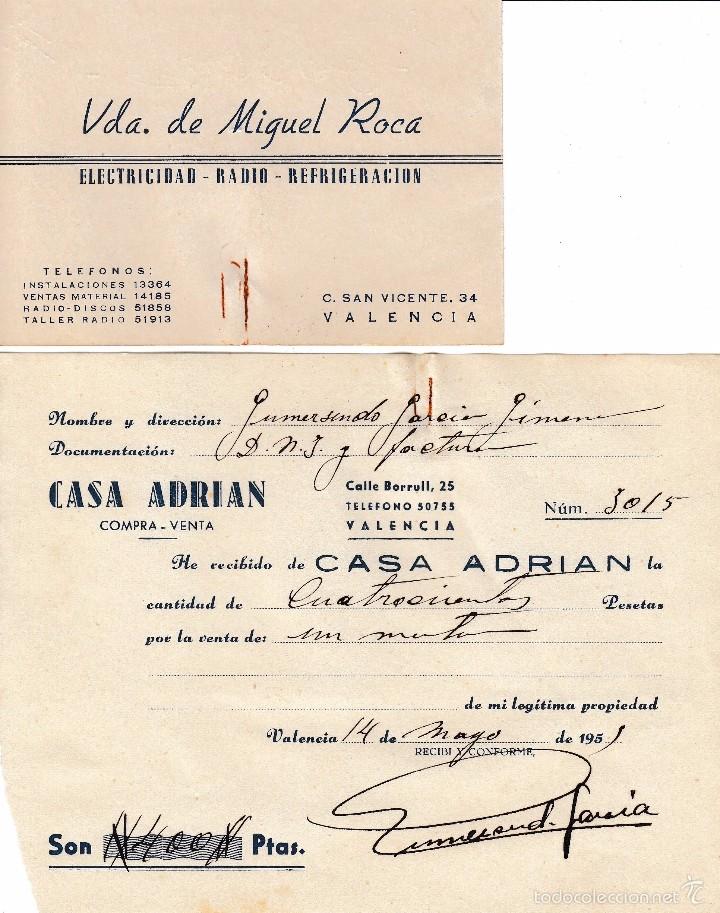 Vda. de Miguel Roca
ELECTRICIDAD - RADIO - REFRIGERACION
TELEFONOS:
INSTALACIONES 13364
VENTAS MATERIAL 14185
RADIO-DISCOS 51858
TALLER RADIO 51913
C. SAN VICENTE, 34
VALENCIA
Nombre y dirección: Gumersindo Garcia Jimeno
Documentación: D.N.I y factura
CASA ADRIAN
COMPRA - VENTA
Calle Borrull, 25
TELEFONO 50755
VALENCIA
Núm. 3015
He recibido de CASA ADRIAN la
cantidad de Cuatrocientas Pesetas
por la venta de: un
de mi legítima propiedad
Valencia 14 de Mayo de 1951
RECIBI Y CONFORME,
Gumersind. Garcia
Son 400 Ptas.
todocoleccion.net